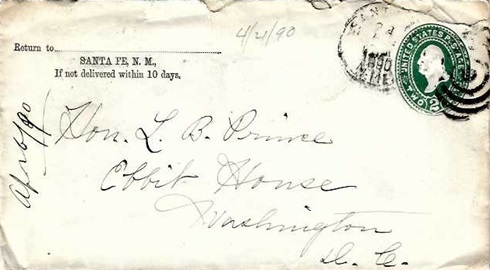 4/21/90
Return to
SANTA FE, N. M.,
If not delivered within 10 days.
UNITED STATES POSTAGE
TWO
2
1890
Hon. L. B. Prince
Ebbit House
Washington
D. C.